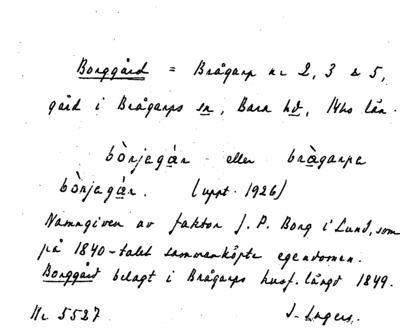 Borggård = Brågarp nr 2, 3 & 5,
gård i Brågarps sn, Bara hd, Mhs län.
bònjagán eller bràgarpa
bònjagán. (uppt. 1926)
Namngiven av faktor J. P. Borg i Lund, som
på 1840-talet sammanköpte egendomen.
Borggård belagt i Brågarps husf. längd 1849.
Nr 5527 I. Ingers.